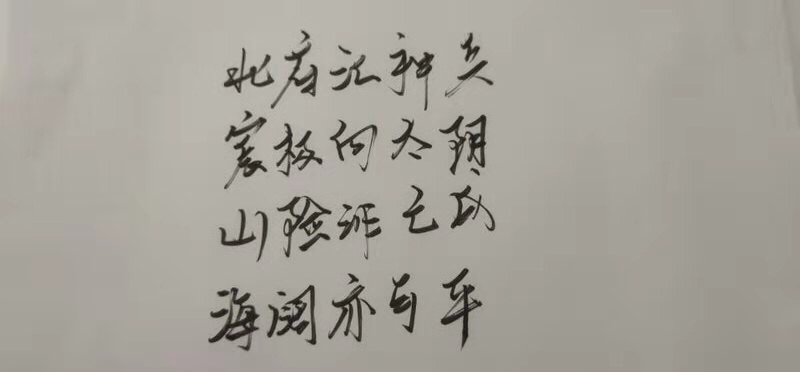 北府江神兵
宸极向太阴
山险非亡
海阔亦可平